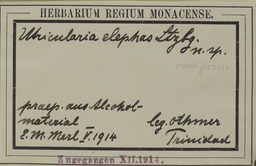 HERBARIUM REGIUM MONACENSE.
Utricularia elephas Ltzbg.
n. sp.
nom. provis.
praep. aus Alcohol-
material leg. Othmer
E. M. Merl V. 1914 Trinidad
Zugegangen XII.1914.